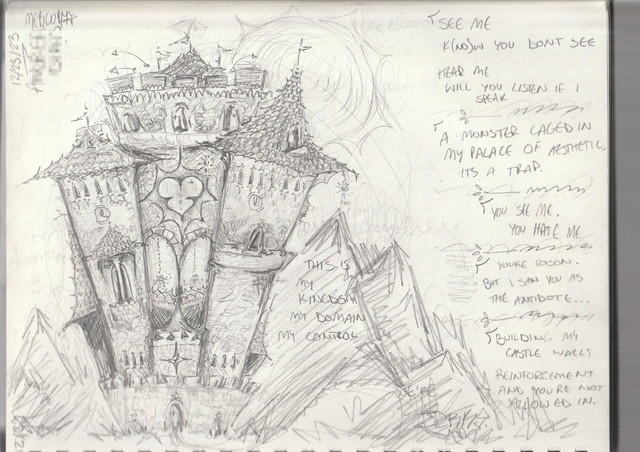 12/23/23
SEE ME
K(NO)W YOU DONT SEE
HEAR ME
WILL YOU LISTEN IF I
SPEAK
A MONSTER CAGED IN
MY PALACE OF AESTHETIC,
ITS A TRAP.
YOU SEE ME.
YOU HATE ME
YOURE POISON.
BUT I SAW YOU AS
THE ANTIDOTE...
BUILDING MY
CASTLE WALLS
REINFORCEMENT
AND YOU'RE NOT
ALLOWED IN.
THIS IS
MY
KINGDOM
MY DOMAIN
MY CONTROL